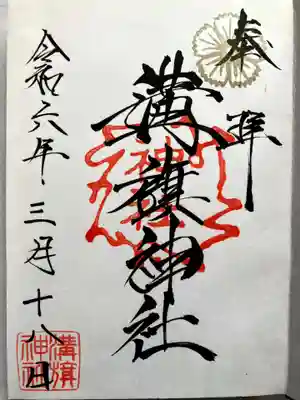 奉拝
溝旗神社
令和六年三月十八日
溝旗
神社